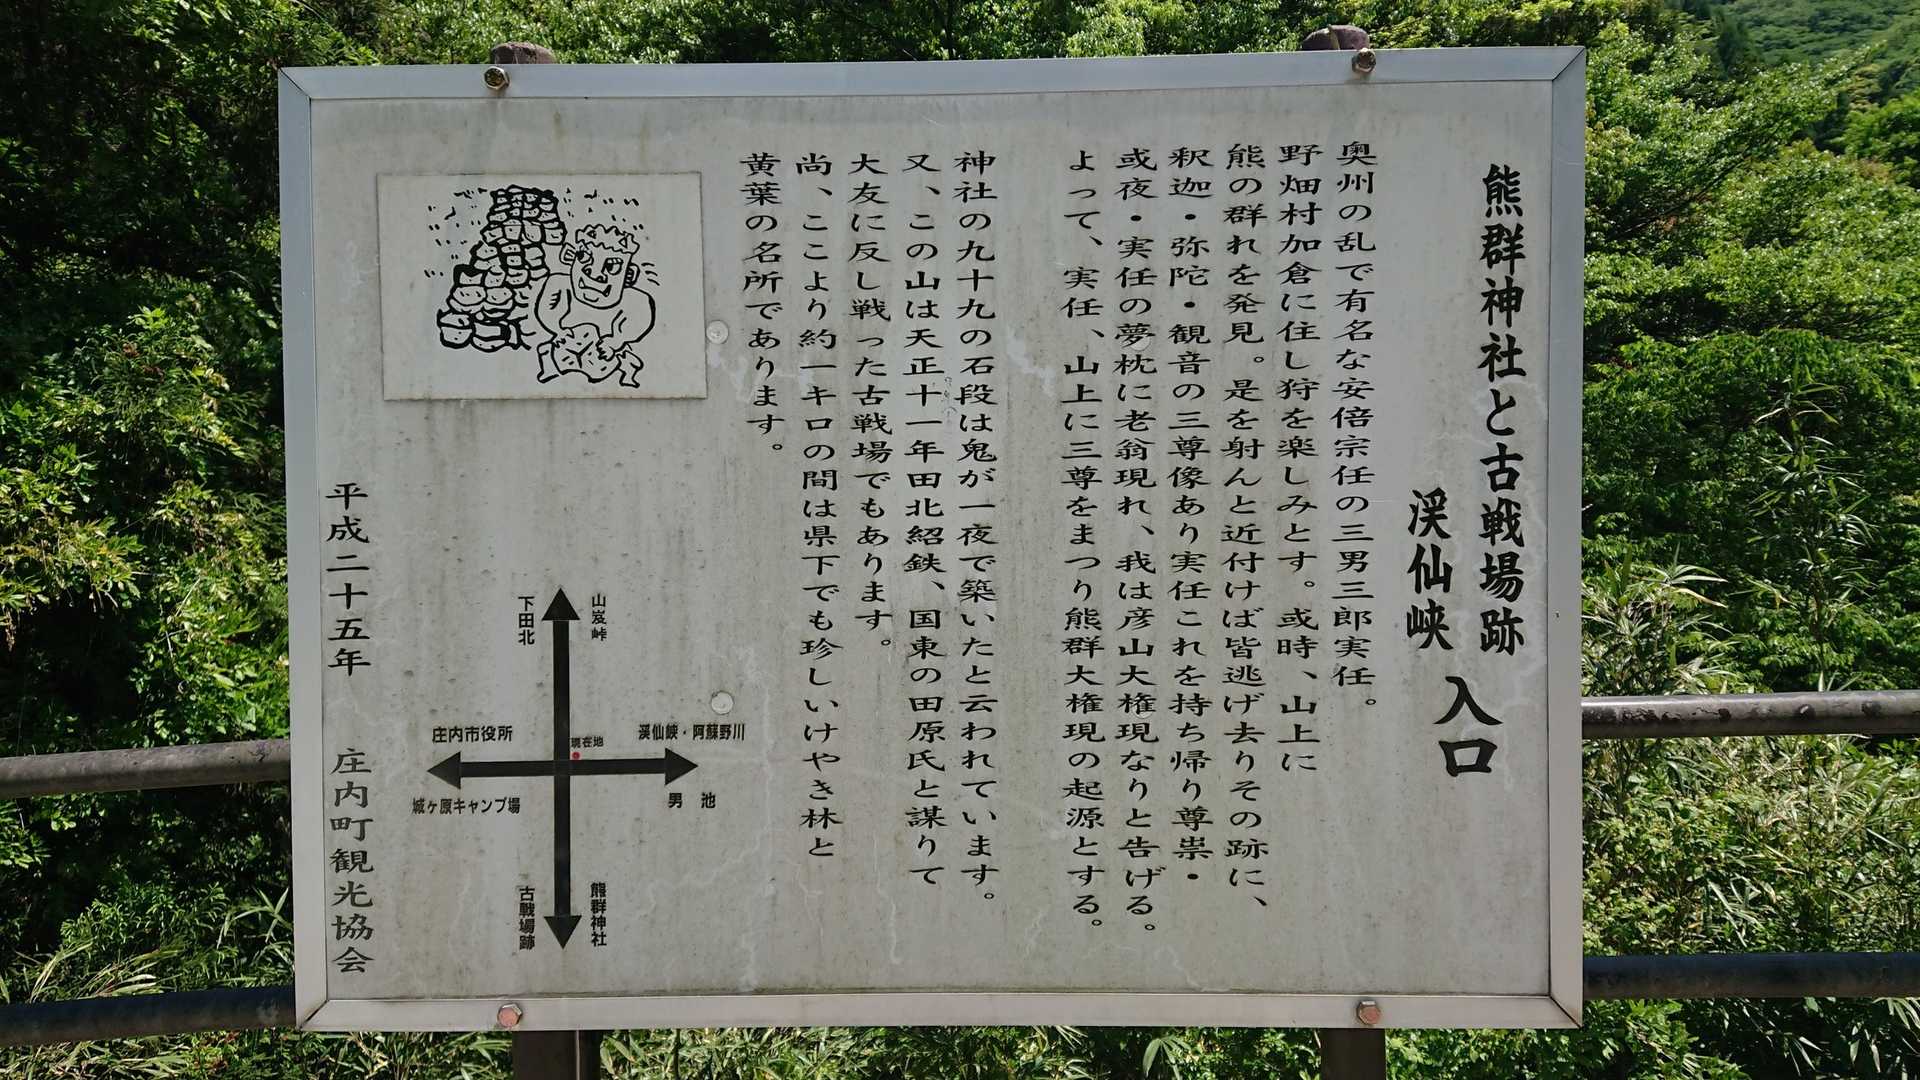 熊群神社と古戦場跡
渓仙峡
入口
奥州の乱で有名な安倍宗任の三男三郎実任。
野畑村加倉に住し狩を楽しみとす。或時、山上に
熊の群れを発見。是を射んと近付けば皆逃げ去りその跡に、
釈迦・弥陀・観音の三尊像あり実任これを持ち帰り尊崇・
或夜・実任の夢枕に老翁現れ、我は彦山大権現なりと告げる。
よって、実任、山上に三尊をまつり熊群大権現の起源とする。
神社の九十九の石段は鬼が一夜で築いたと云われています。
又、この山は天正十一年田北紹鉄、国東の田原氏と謀りて
大友に反し戦った古戦場でもあります。
尚、ここより約一キロの間は県下でも珍しいけやき林と
黄葉の名所であります。
山岌峠
下田北
庄内市役所
現在地
渓仙峡・阿蘇野川
城ヶ原キャンプ場
男 池
熊群神社
古戦場跡
平成二十五年 庄内町観光協会